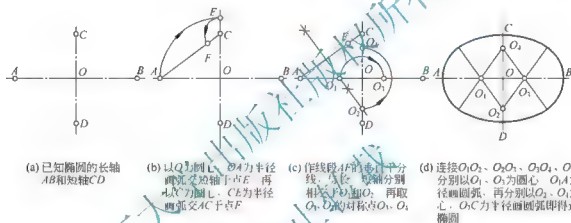 E
C
A
O
B
F
D
A
O
B
C
D
E
F
A
O₁
O
O₃
B
C
O₄
O₂
D
C
O₄
A
O₁
O
O₃
B
O₂
D
(a) 已知椭圆的长轴
AB和短轴CD
(b) 以O为圆心、OA为半径
画弧交短轴于点E 再
以C为圆心、CE为半径
画弧交AC于点F
(c) 作线段AF的垂直平分
线
O₁、O₂的对称点O₃、O₄
(d) 连接O₁O₂、O₂O₃、O₃O₄、O
分别以O₁、O₃为圆心 O₁A
径画圆弧,再分别以O₂、O
心、O₂C为半径画圆弧即得
椭圆